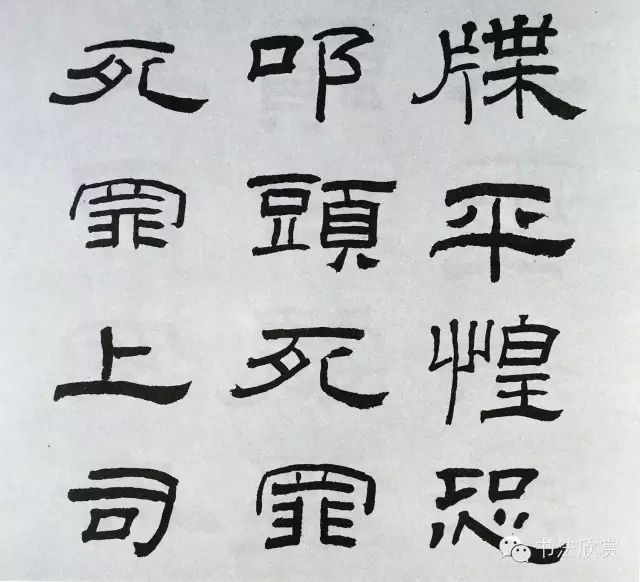 牒平惶恐
叩頭死罪
死罪上司
书法欣赏